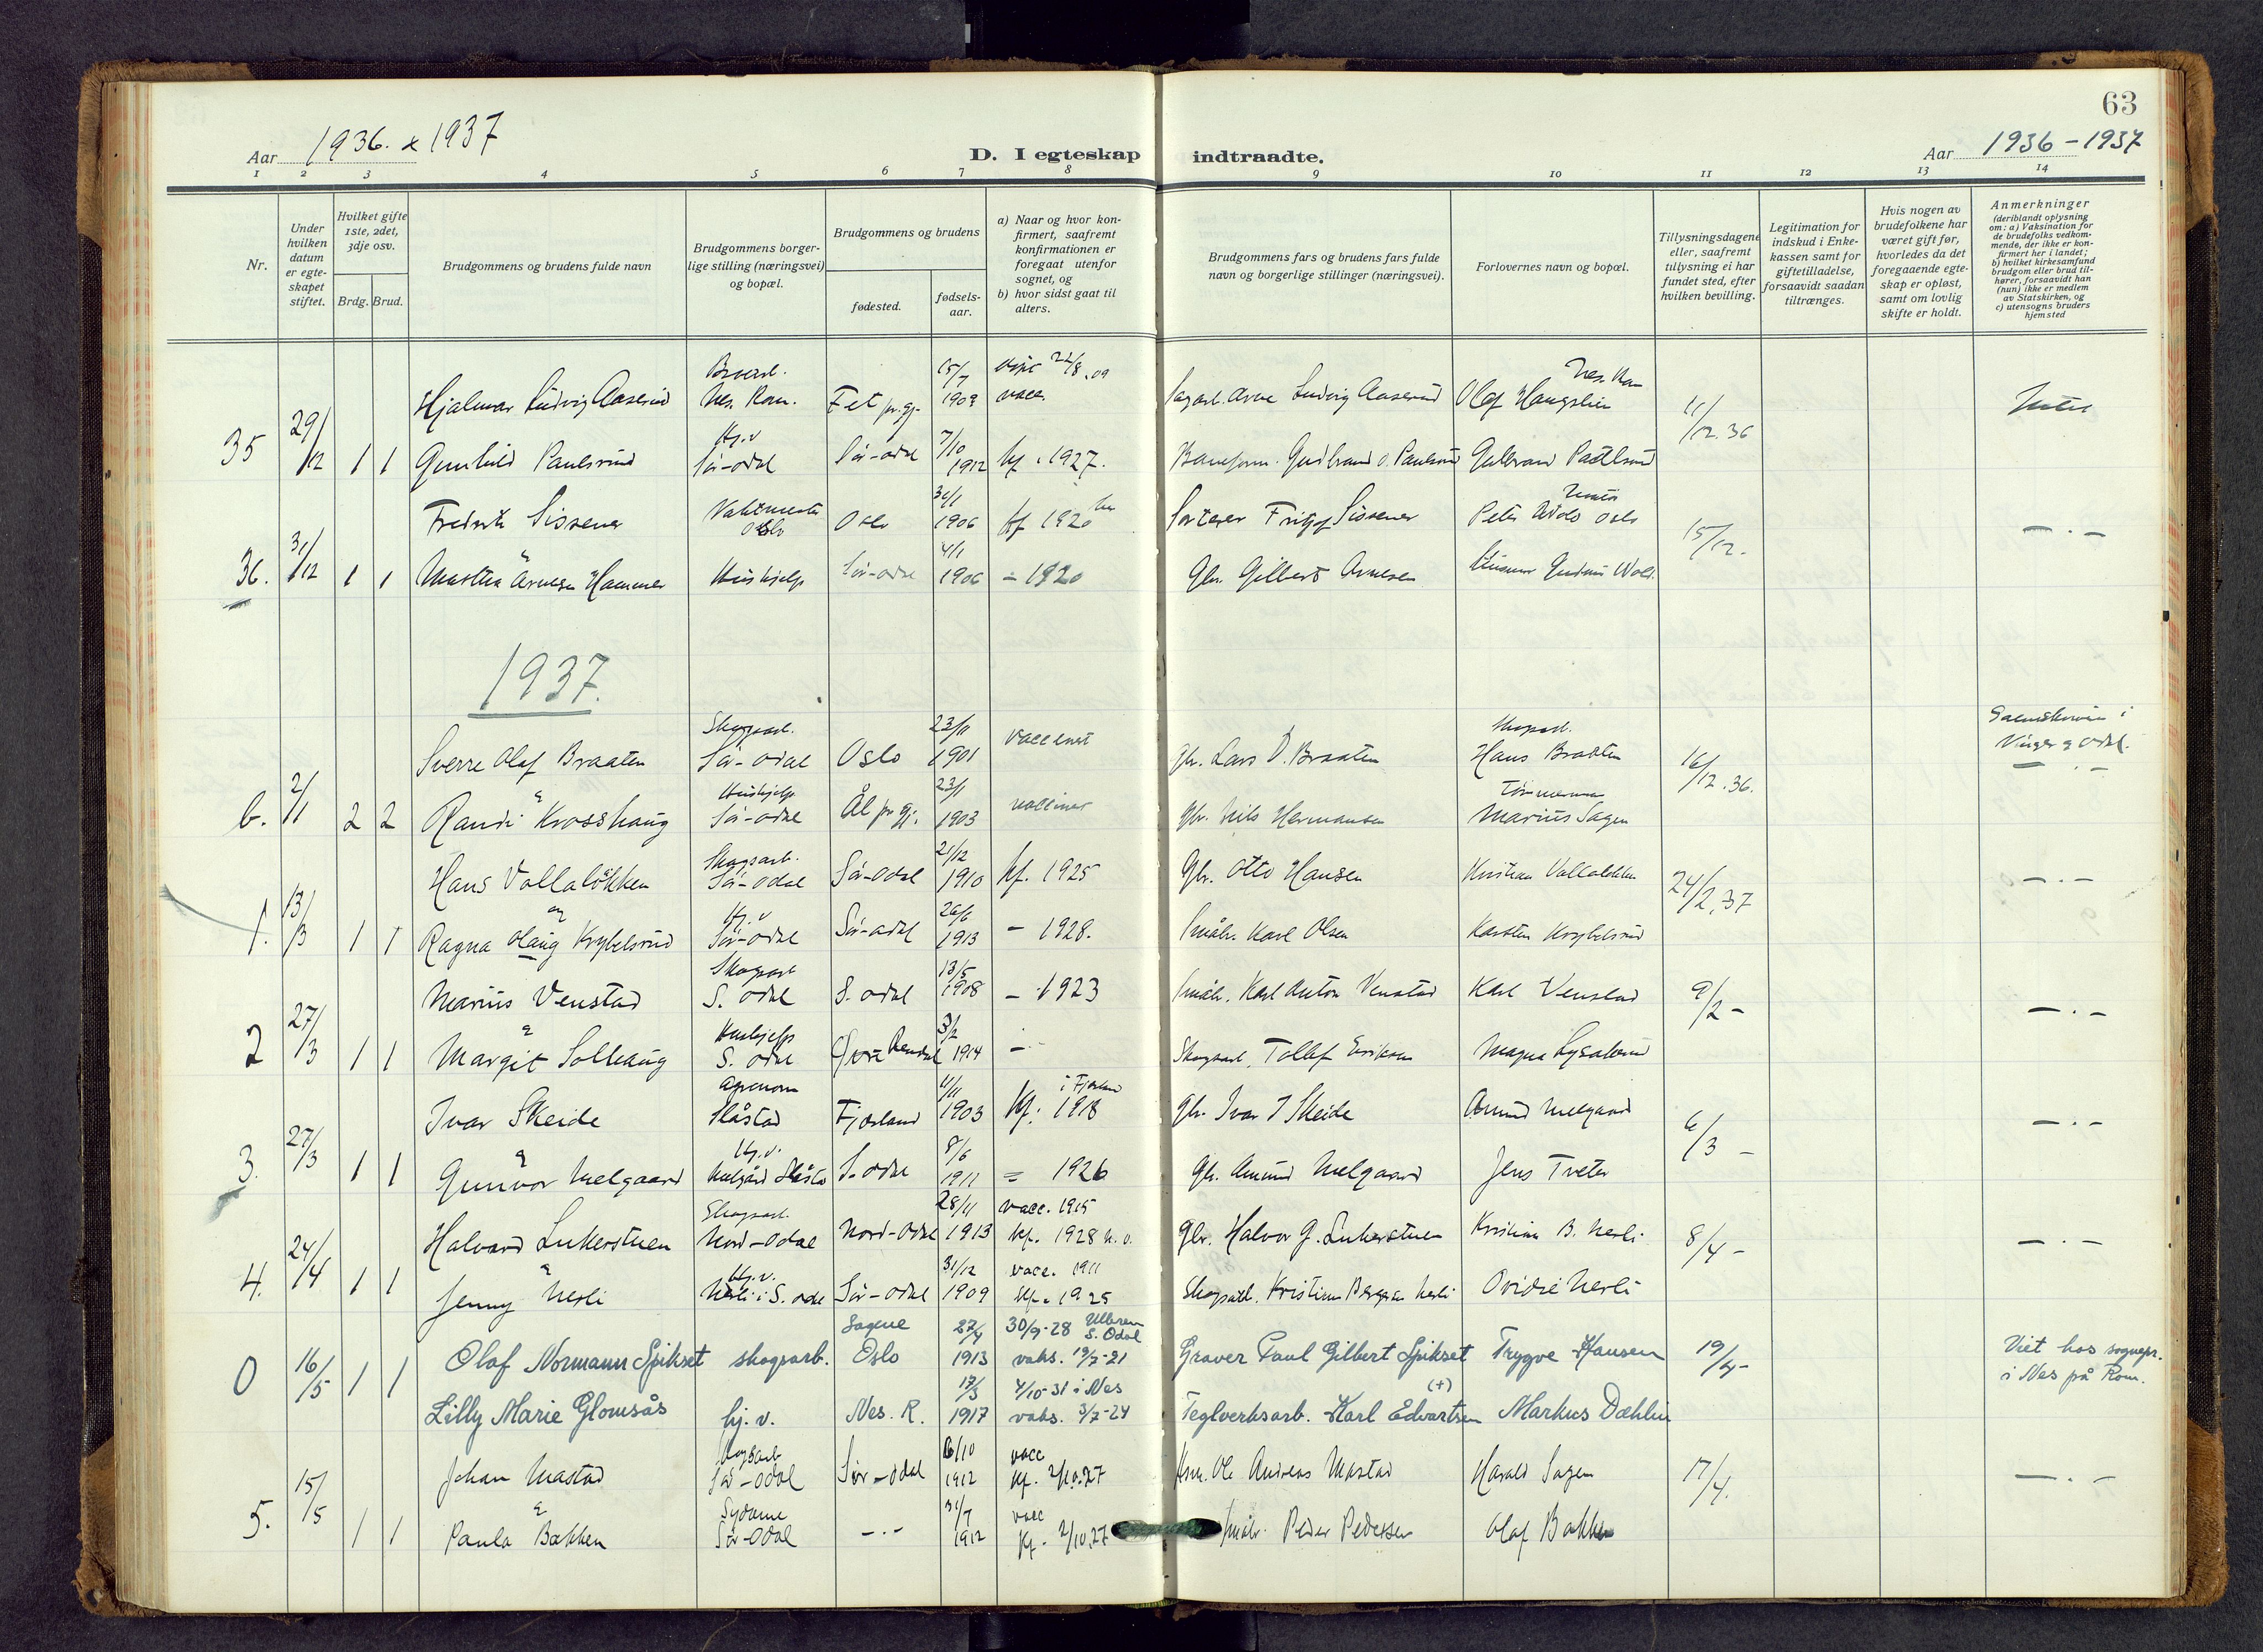 63
Aar 1936. & 1937
D. I egteskap indtraadte.
Aar 1936-1937
1 2 3 4 5 6 7 8 9 10 11 12 13 14
Nr.
Under hvilken datum er egte- skapet stiftet.
Hvilket gifte 1ste, 2det, 3dje osv.
Brdg. Brud.
Brudgommens og brudens fulde navn
Brudgommens borger- lige stilling (næringsvei) og bopæl.
Brudgommens og brudens
fødested.
fødsels- aar.
a) Naar og hvor kon- firmert, saafremt konfirmationen er foregaat utenfor sognet, og
b) hvor sidst gaat til alters.
Brudgommens fars og brudens fars fulde navn og borgerlige stillinger (næringsvei).
Forlovernes navn og bopæl.
Tillysningsdagene eller, saafremt tillysning ei har fundet sted, efter hvilken bevilling.
Legitimation for indskud i Enke- kassen samt for giftetilladelse, forsaavidt saadan tiltrænges.
Hvis nogen av brudefolkene har været gift før, hvorledes da det foregaaende egte- skap er opløst, samt om lovlig skifte er holdt.
Anmerkninger
(deriblandt oplysning om: a) Vaksination for de brudefolks vedkom- mende, der ikke er kon- firmert her i landet; b) hvilket kirkesamfund brudgom eller brud til- hører, forsaavidt han (hun) ikke er medlem av Statskirken, og c) utensogns bruders hjemsted
Nes. Rom. Fet pr. gj. 15/7 1909 vacc.
Hjalmar Ludvig Aaserud Ludvig Aaserud Olaf Haugslien 11/12.36
35 29/12 1 1 Gunhild Paulsrud Hj.v Sör-Odal Sör-Odal 7/10 1912 kf. 1927. Gudbrand O. Paulsrud
Fredrik Sissener Vaktmester Oslo Oslo 1906 kf 1920 Sissener Oslo 15/12.
36. 31/12 1 1 Martha Arnesen Hammer Hushjelp Sör-Odal 4/1 1906 - 1920 Gbr. Gilbert Arnesen
1937.
Sverre Olaf Braaten Skogsarb. Sör-Odal Oslo 23/11 1901 Gbr. Lars O. Braaten Skogsarb. Hans Braaten 16/12.36. Vinger og Odal.
b. 2/1 2 2 & Randi Krosshaug Hushjelp Sör-Odal Ål pr gj. 23/1 1903 Gbr. Nils Hermansen Tömmerman Marius Sagen
Hans Vollalökken Skogsarb. Sör-Odal Sör-Odal 21/12 1910 kf. 1925 Gbr. Otto Hansen Kristian Vollalökken 24/2.37 -.-
1. 13/3 1 1 og Ragna Olaug Krybelsrud Hj.v Sör-Odal Sör-Odal 26/6 1913 - 1928. Småbr. Karl Olsen Karsten Krybelsrud
Marius Venstad Skogsarb S. Odal S. Odal 13/5 1908 - 1923 Småbr. Karl Anton Venstad Karl Venstad 9/2 - -.-
2 27/3 1 1 & Margit Solhaug Hushjelp S. Odal Rendal 3/2 1914 - Skogsarb. Tollef Eriksen Magna
Ivar Skeide Agronom Slåstad Fjærland 11/11 1903 kf. 1918 i Fjærland Gbr. Ivar I Skeide Amund Melgaard 6/3 - -.-
3. 27/3 1 1 & Gunvor Melgaard Hj.v. S. Odal 8/6 1911 = 1926 Gbr. Amund Melgaard Jens Tveter
Halvard Lukerstuen Skogsarb. Nord-Odal Nord-Odal 28/11 1913 vacc. 1915 kf. 1928 N.O. Gbr. Halvor G. Lukerstuen Kristian B. Nerli 8/4 - -.-
4. 24/4 1 1 & Jenny Nerli Hj.v. Nerli i S. Odal Sör-Odal 31/12 1909 vacc. 1911 kf. 1925 Skogsarb. Kristian Bergersen Nerli Ovidie Nerli
0 16/5 1 1 Olaf Normann Spikset skogsarb. Sagene Oslo 27/4 1913 30/9-28 Ullern S. Odal vaks. 19/7-21 Graver Paul Gilbert Spikset Trygve Hansen 19/4- Viet hos sognepr. i Nes på Rom.
Lilly Marie Glomsås hj. v. Nes. R. 17/3 1917 4/10-31 i Nes vaks. 3/7-24 Teglverksarb. Karl Edvartsen (+) Markus Dæhlin
Johan Mastad Skogsarb Sör-Odal Sör-Odal 6/10 1912 vacc kf. 2/10.27 Ole Andreas Mastad Harald Sagen 17/4. -.-
5. 15/5 1 1 & Paula Bakken Sydame Sör-Odal -.- 31/7 1912 vacc kf. 2/10.27 Småbr. Peder Pedersen Olaf Bakken